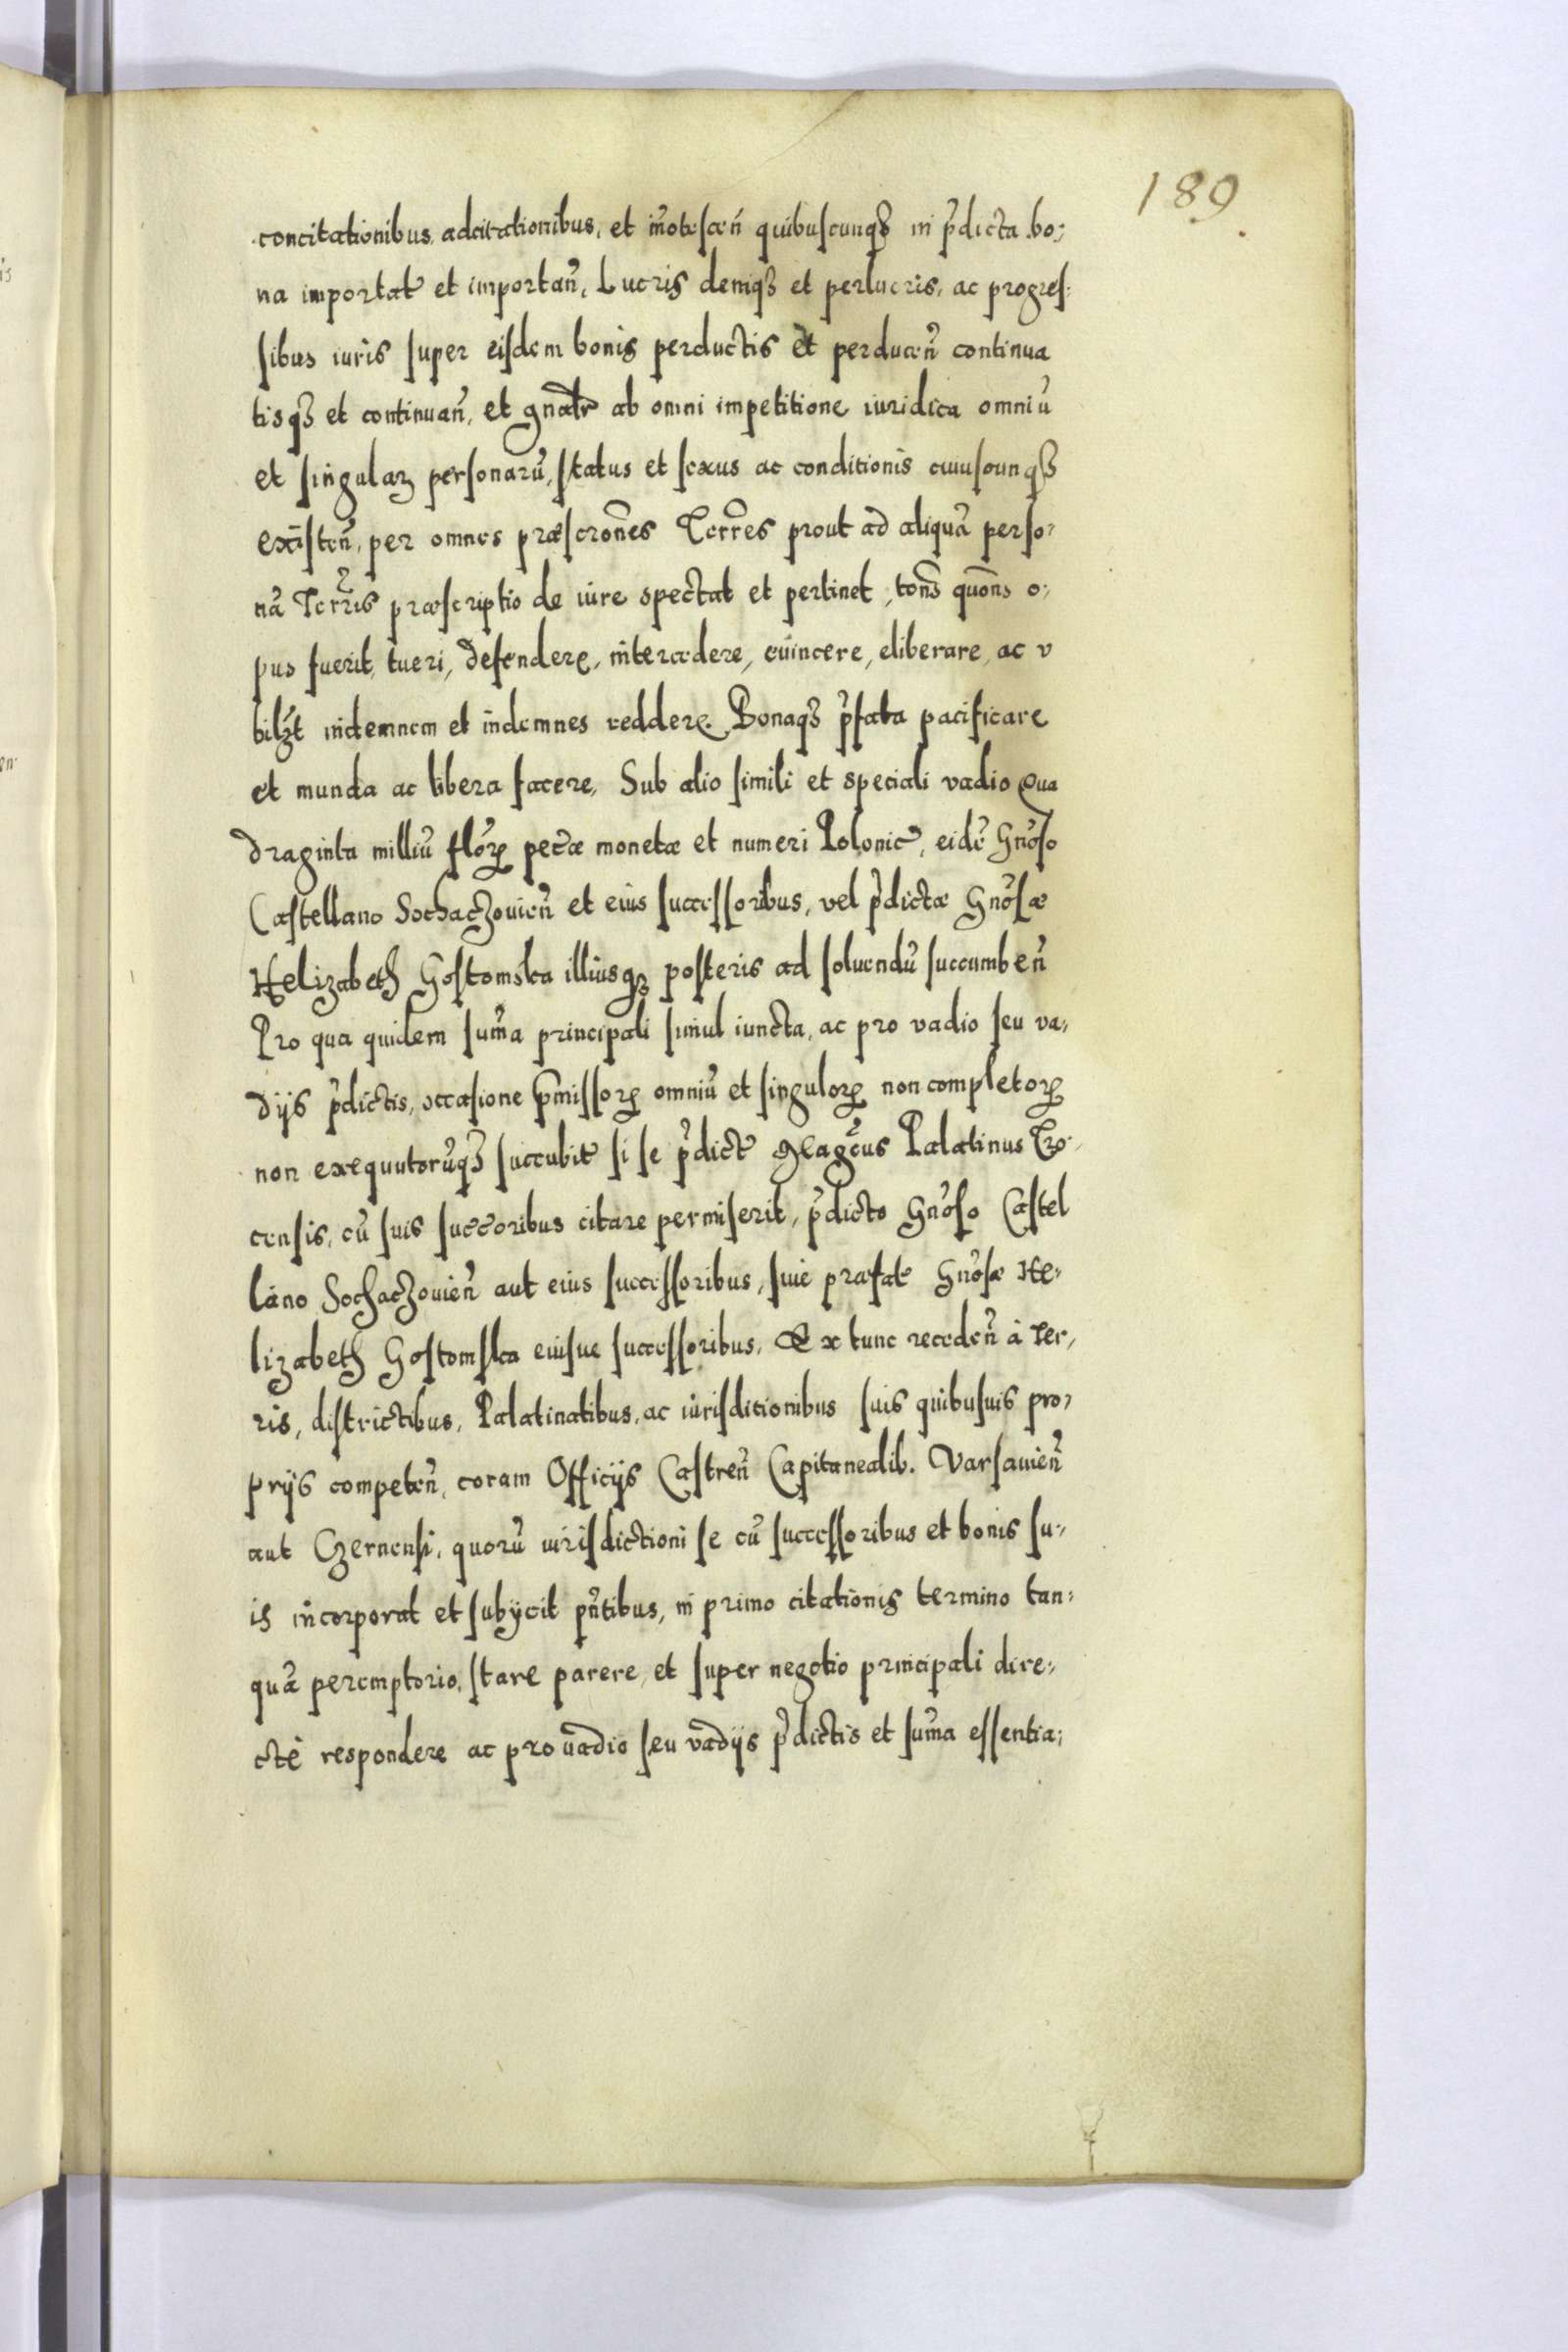 189
concitationibus, adcitationibus, et im̃otescen̄ quibuscunq₃ in p̃dicta bo:
na importat̃ et importan̄, Lucris deniq₃ et perlucris, ac progres:
sibus iuris super eisdem bonis perductis et perducen̄ continua
tisq₃ et continuan̄, et gñaltr ab omni impetitione iuridica omniũ
et singulaꝝ personarũ, status et sexus ac conditionis cuiuscunq₃
existen̄, per omnes præscrōnes Terr̃es prout ad aliquã perso:
nã Terr̃is præscriptio de iure spectat et pertinet, tōns quōns o:
pus fuerit, tueri, defendere, intercedere, euincere, eliberare, ac v
bilꝫt indemnem et indemnes reddere. Bonaq₃ p̃fata pacificare
et munda ac libera facere, Sub alio simili et speciali vadio Qua
draginta milliũ flõrꝝ pecc̃æ monetæ et numeri Polonic̃, eidẽ Gñoso
Castellano Sochaczouien̄ et eius successoribus, vel p̃dictæ Gñosæ
Helizabeth Gostomska illiusq₃ posteris ad soluendũ succumben̄
Pro qua quidem sum̃a principali simul iuncta, ac pro vadio seu va:
dijs p̃dictis, occasione p̃missorꝝ omniũ et singulorꝝ non completorꝝ
non exequutorũq₃ succubit̃ si se p̃dict̃ Mag̃cus Palatinus Tro:
censis, cũ suis succ̃oribus citare permiserit, p̃dicto Gñoso Castel
lano Sochaczouien̄ aut eius successoribus, siue præfat̃ Gñosæ He:
lizabeth Gostomska eiusue successoribus, Ex tunc receden̄ à Ter,
ris, districtibus, Palatinatibus, ac iurisditionibus suis quibusuis pro,
prijs competen̄, coram Officijs Castren̄ Capitanealib. Varsauien̄
aut Czernensi, quorũ iurisdictioni se cũ successoribus et bonis su:
is incorporat et subÿcit pñtibus, in primo citationis termino tan:
quã peremptorio, stare parere, et super negotio principali dire:
ctè respondere ac pro vadio seu vadijs p̃dictis et sum̃a essentia: